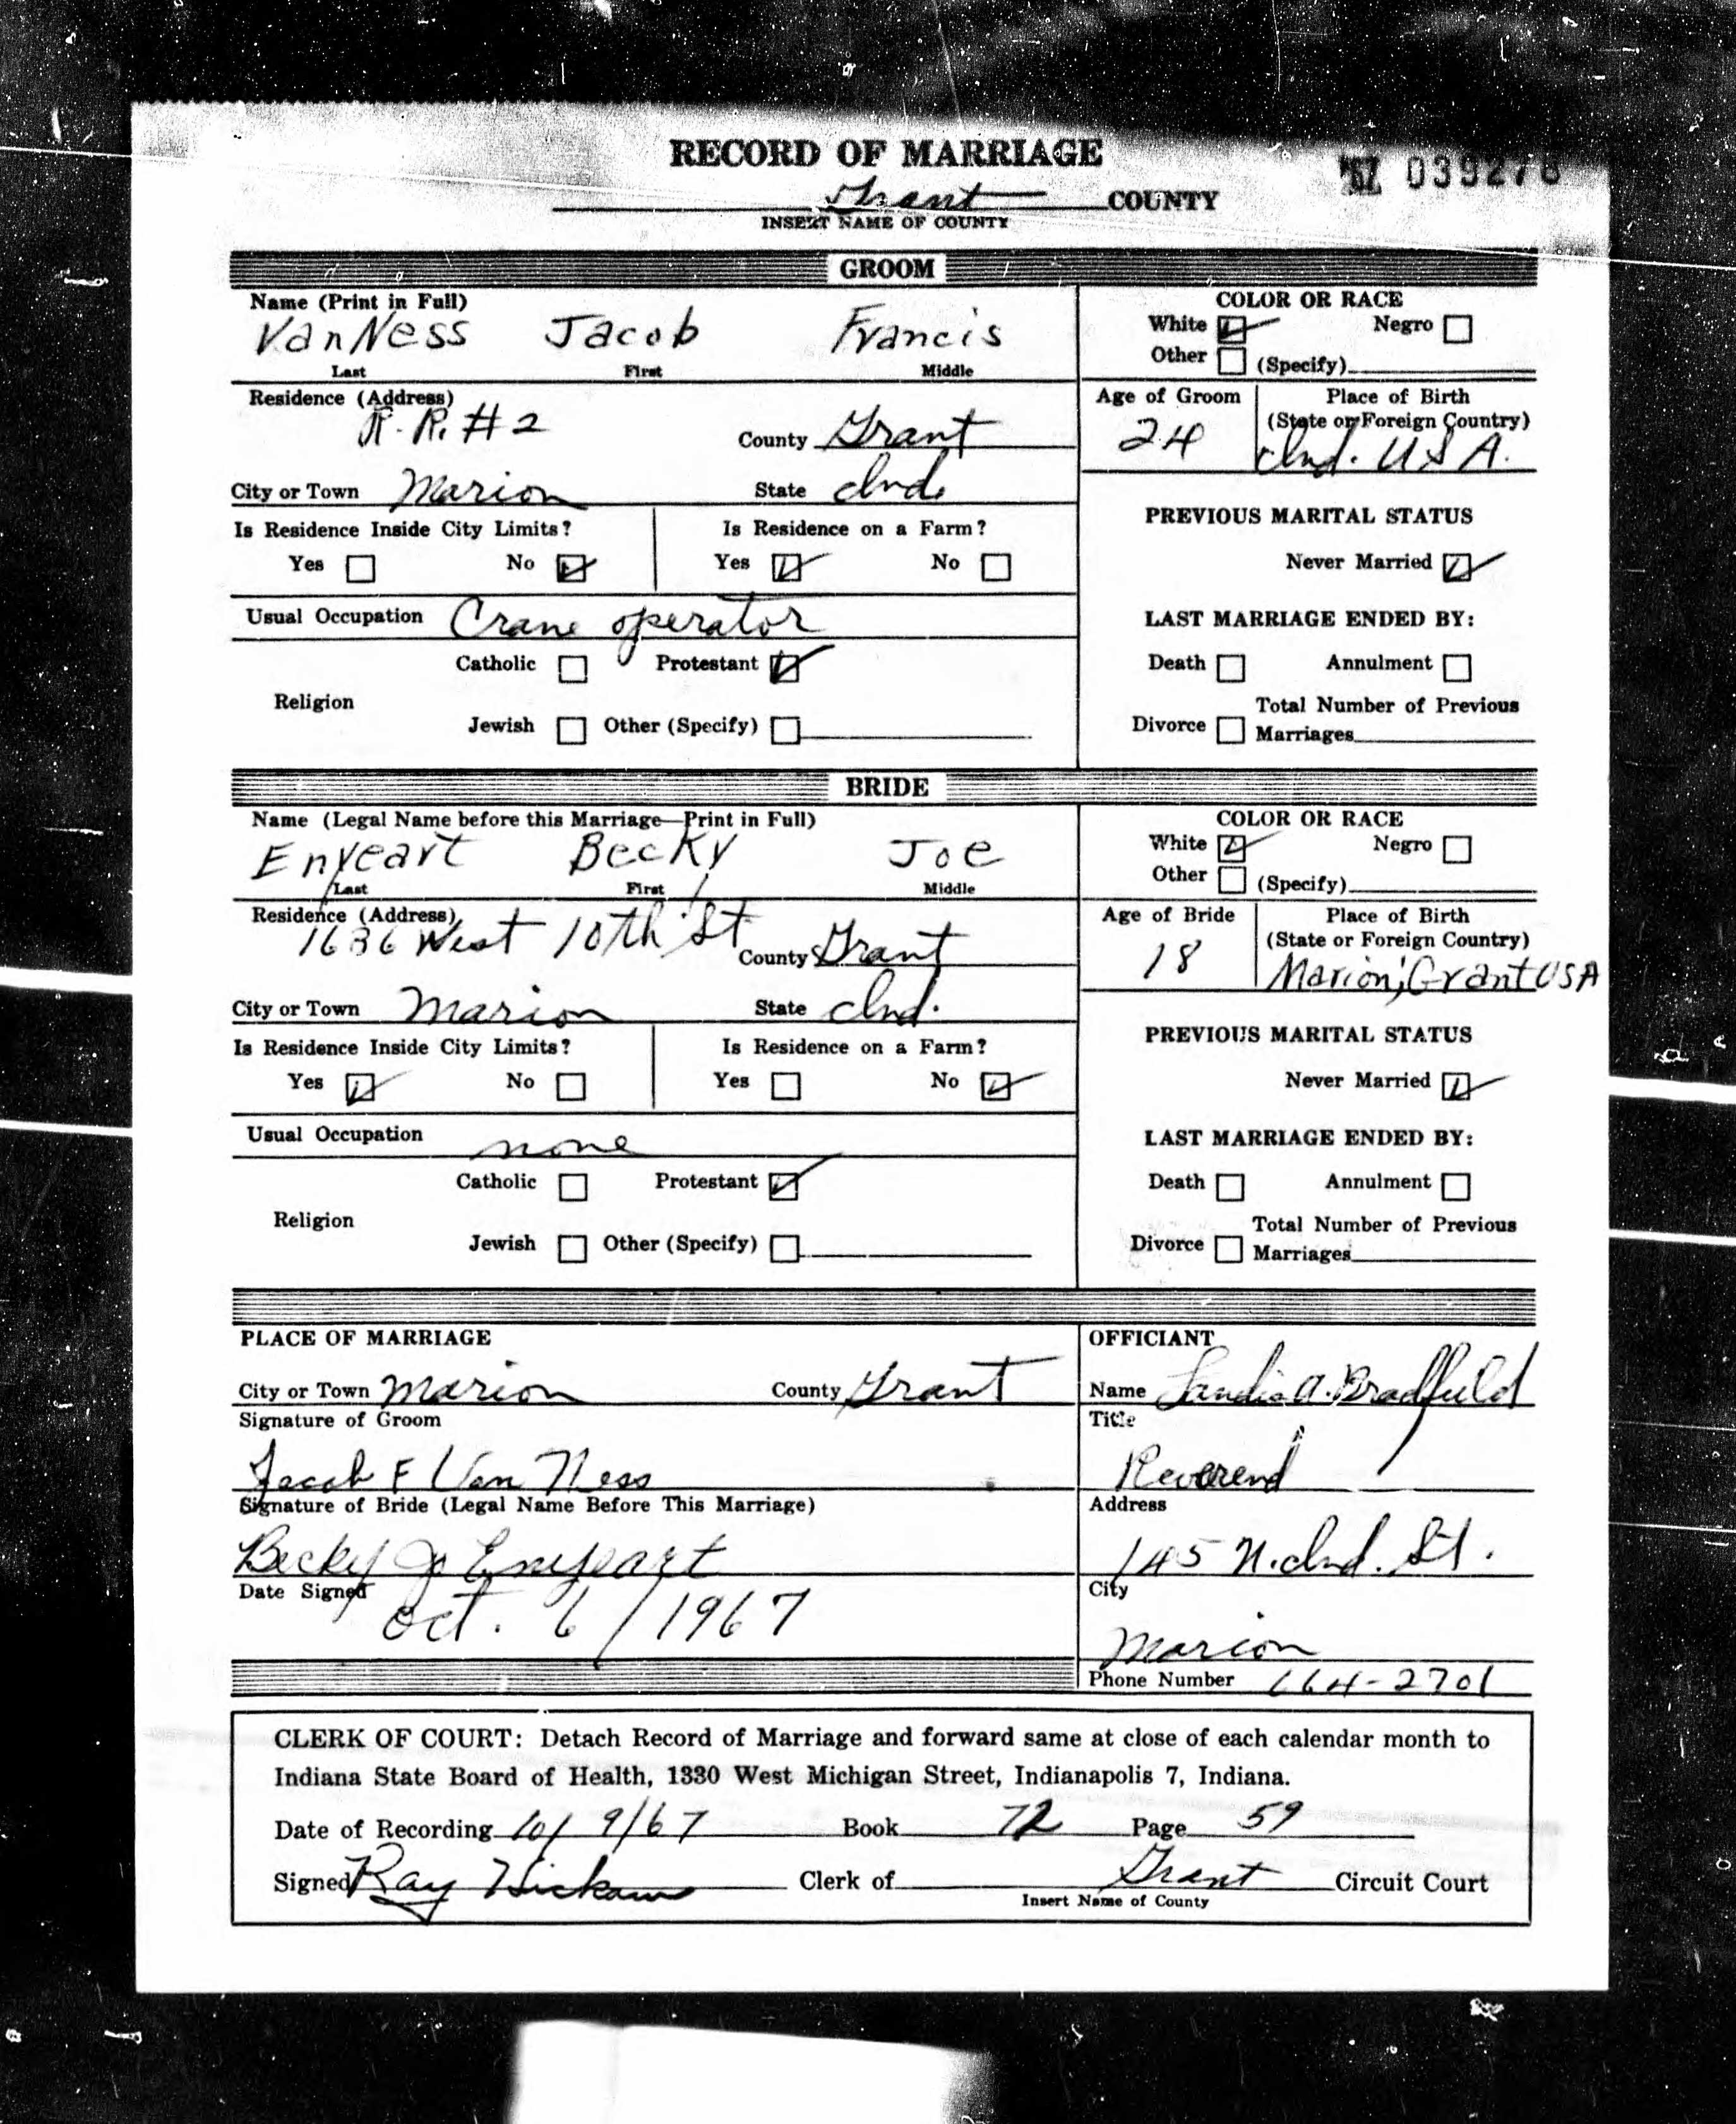 RECORD OF MARRIAGE
'67 039276
Grant COUNTY
INSERT NAME OF COUNTY
GROOM
Name (Print in Full)
VanNess Jacob Francis
Last First Middle
COLOR OR RACE
White Negro
Other (Specify)
Residence (Address)
R.R. #2
County Grant
Age of Groom
24
Place of Birth
(State or Foreign Country)
Ind. USA.
City or Town Marion State Ind.
Is Residence Inside City Limits? Is Residence on a Farm?
Yes No Yes No
PREVIOUS MARITAL STATUS
Never Married
Usual Occupation Crane operator
LAST MARRIAGE ENDED BY:
Catholic Protestant
Religion
Jewish Other (Specify)
Death Annulment
Total Number of Previous
Divorce Marriages
BRIDE
Name (Legal Name before this Marriage—Print in Full)
Enyeart Becky Joe
Last First Middle
COLOR OR RACE
White Negro
Other (Specify)
Residence (Address)
1636 West 10th St County Grant
Age of Bride
18
Place of Birth
(State or Foreign Country)
Marion, Grant USA
City or Town Marion State Ind.
Is Residence Inside City Limits? Is Residence on a Farm?
Yes No Yes No
PREVIOUS MARITAL STATUS
Never Married
Usual Occupation none
LAST MARRIAGE ENDED BY:
Catholic Protestant
Religion
Jewish Other (Specify)
Death Annulment
Total Number of Previous
Divorce Marriages
PLACE OF MARRIAGE
City or Town Marion County Grant
Signature of Groom
Jacob F Van Ness
Signature of Bride (Legal Name Before This Marriage)
Becky Jo Enyeart
Date Signed
Oct. 6/1967
OFFICIANT
Name A. Bradfield
Title
Reverend
Address
145 N. Ind. St.
City
Marion
Phone Number 664-2701
CLERK OF COURT: Detach Record of Marriage and forward same at close of each calendar month to
Indiana State Board of Health, 1330 West Michigan Street, Indianapolis 7, Indiana.
Date of Recording 10/9/67 Book 72 Page 59
Signed Ray Hickam Clerk of Grant Circuit Court
Insert Name of County